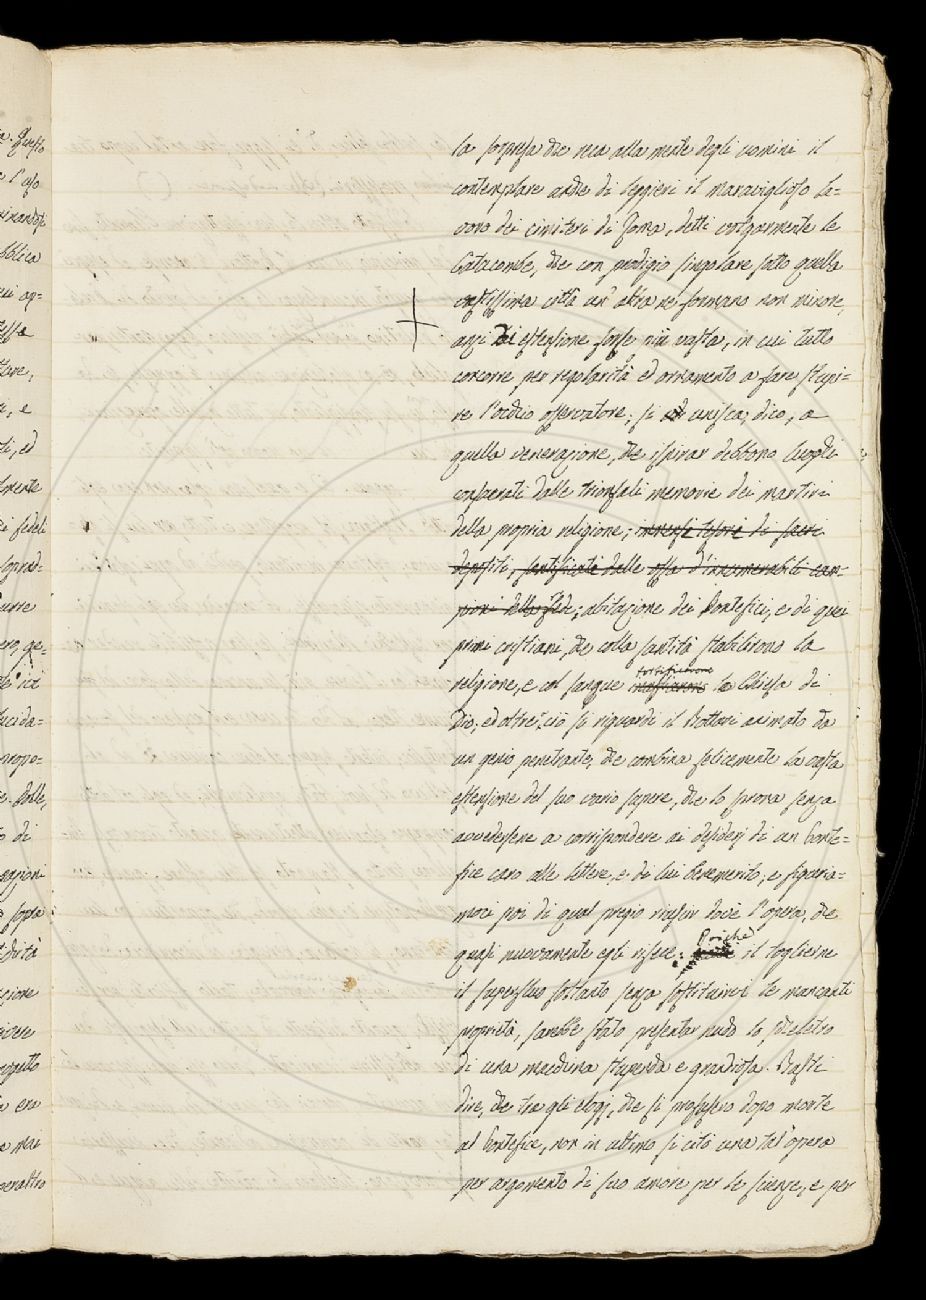 la sorpresa che reca alla mente degli uomini il
contemplare anche di leggieri il maraviglioso la=
voro dei cimiteri di Roma, detti volgarmente le
Catacombe, che con prodigio singolare sotto quella
vastissima città un' altra ne formano non minore,
anzi di estensione forse più vasta, in cui tutto
concorre per regolarità ed ornamento a fare stupi=
re l'occhio osservatore; si unisca, dico, a
quella venerazione, che ispirar debbono luoghi
consecrati dalle trionfali memorie dei martiri
della propria religione; immensi tesori di sacri
depositi, santificati dalle ossa d'innumerabili cam=
pioni della fede; abitazione dei Pontefici, e di quei
primi cristiani, che colla santità stabilirono la
religione, e col sangue fortificarono la Chiesa di
Dio; ed oltre ciò si riguardi il Bottari animato da
un genio penetrante, che combina felicemente la vasta
estensione del suo vario sapere, che lo sprona senza
avvedersene a corrispondere ai desiderj di un Ponte=
fice caro alle lettere, e di lui benemerito; e figuria=
moci poi di qual pregio riuscir dovè l'opera, che
quasi nuovamente egli rifece: Poiché il toglierne
il superfluo soltanto senza sostituirvi le mancanti
proprietà, sarebbe stato presentar nudo lo scheletro
di una macchina stupenda e grandiosa. Basti
dire, che tra gli elogj, che si profusero dopo morte
al Pontefice, non in ultimo si citò una tal'opera
per argomento di suo amore per le scienze, e per